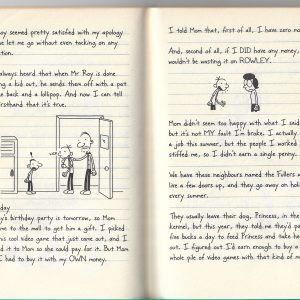 oy seemed pretty satisfied with my apology
e let me go without even tacking on any
tion.
lways heard that when Mr Roy is done
ng a kid out, he sends them off with a pat
e back and a lollipop. And now I can tell
irsthand that it's true.
day
y's birthday party is tomorrow, so Mom
me to the mall to get him a gift. I picked
his cool video game that just came out, and I
d it to Mom so she could pay for it. But Mom
I had to buy it with my OWN money.
I told Mom that, first of all, I have zero mone
And, second of all, if I DID have any money,
wouldn't be wasting it on ROWLEY.
Mom didn't seem too happy with what I said
but it's not MY fault I'm broke. I actually
a job this summer, but the people I worked
stiffed me, so I didn't earn a single penny.
We have these neighbours named the Fullers w
live a few doors up, and they go away on holi
every summer.
They usually leave their dog, Princess, in the
kennel, but this year, they told me they'd p
five bucks a day to feed Princess and take he
out. I figured out I'd earn enough to buy a
whole pile of video games with that kind of m